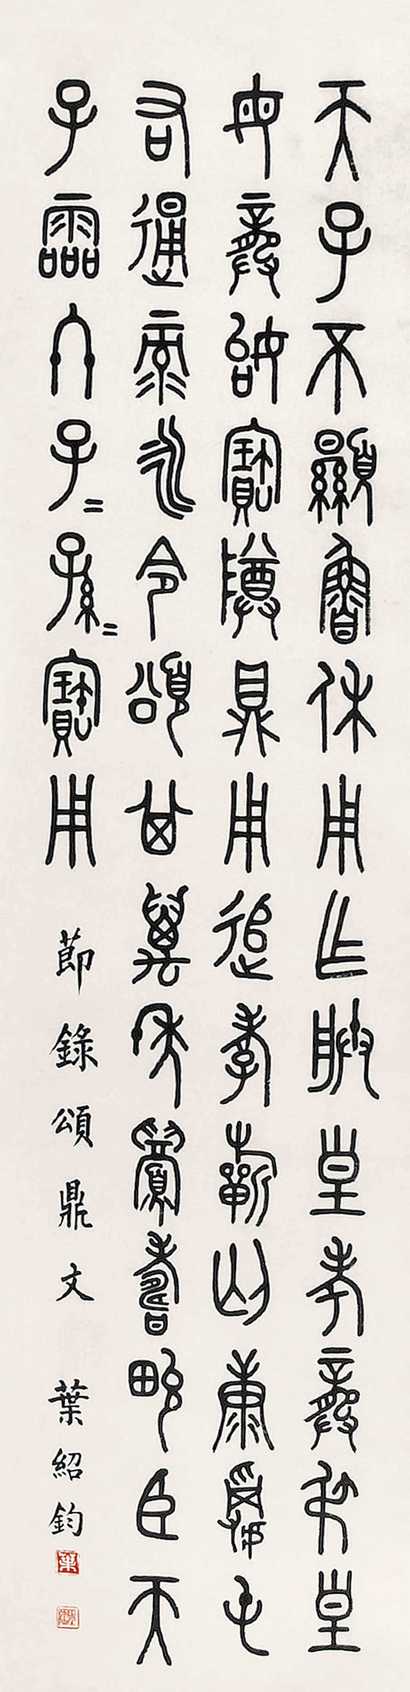 天子不顯魯休用乍朕皇考龏弔皇
母龏姒寶尊鼎用追孝祈匄康屯
右通彔永令頌其萬年眉壽畯臣天
子霝冬子=孫=寶用
節錄頌鼎文 葉紹鈞
葉